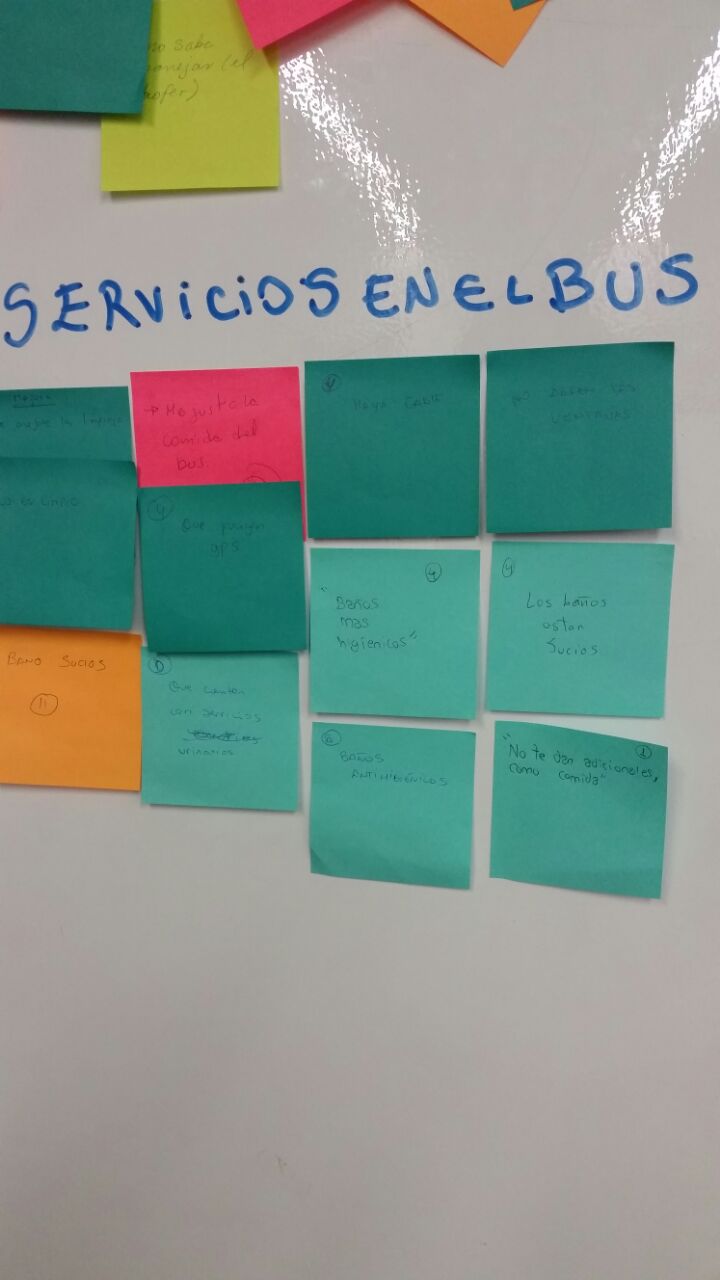 no sabe
manejar (el
SERVICIOS EN EL BUS
Mejora
mejore la limpieza
→ Me gusta la
comida del
bus.
4
Haya cable
no abren las
ventanas
es limpio
4
Que pongan
gps
"Baños
mas
higienicos"
4
4
Los baños
estan
sucios
BAÑO SUCIOS
11
Que cuenten
con servicios
urinarios
BAÑOS
ANTIHIGIÉNICOS
1
"No te dan adicionales,
como comida"